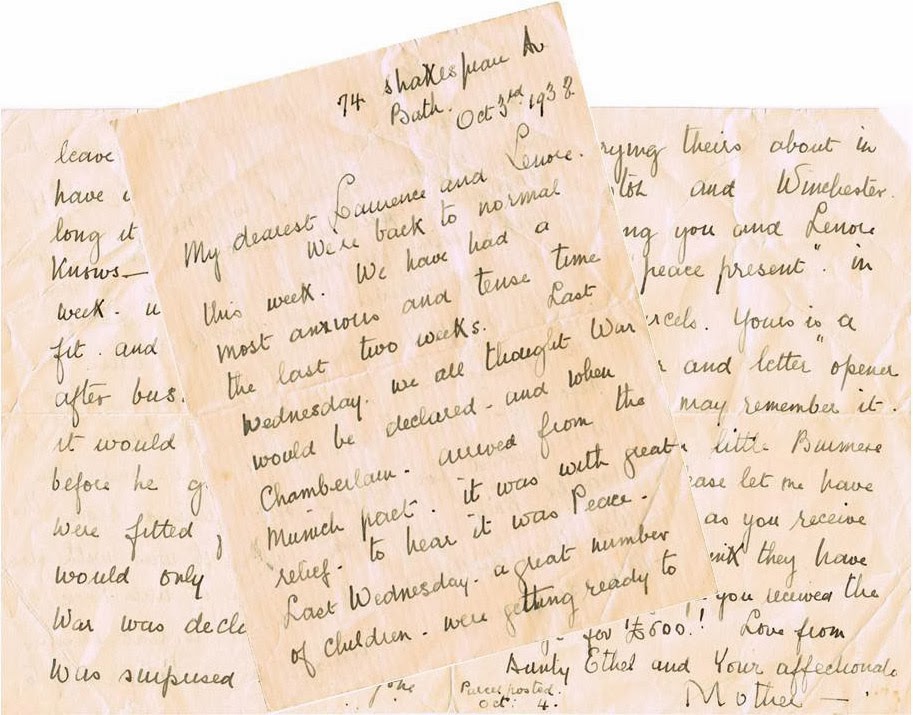 74 Shakespear Av
Bath.
Oct 3rd. 1938.
My dearest Laurence and Lenore.
We're back to normal
this week. We have had a
most anxious and tense time
the last two weeks. Last
Wednesday. we all thought War
would be declared - and when
Chamberlain - arrived from the
Munich pact. it was with great
relief. to hear it was Peace.
Last Wednesday. a great number
of children - were getting ready to
leave
have
long it
Knows—
week.
fit. and
after bus.
it would
before he
were fitted
would only
War was decl
Was surpused
rying theirs about in
and Winchester.
ng you and Lenore
peace present". in
rcels. Yours is a
and letter opener
may remember it.
little Burmese
ease let me have
as you receive
they have
you received the
for £500.! Love from
Aunty Ethel and Your affectionate
Mother —
Parcel posted.
Oct: 4.